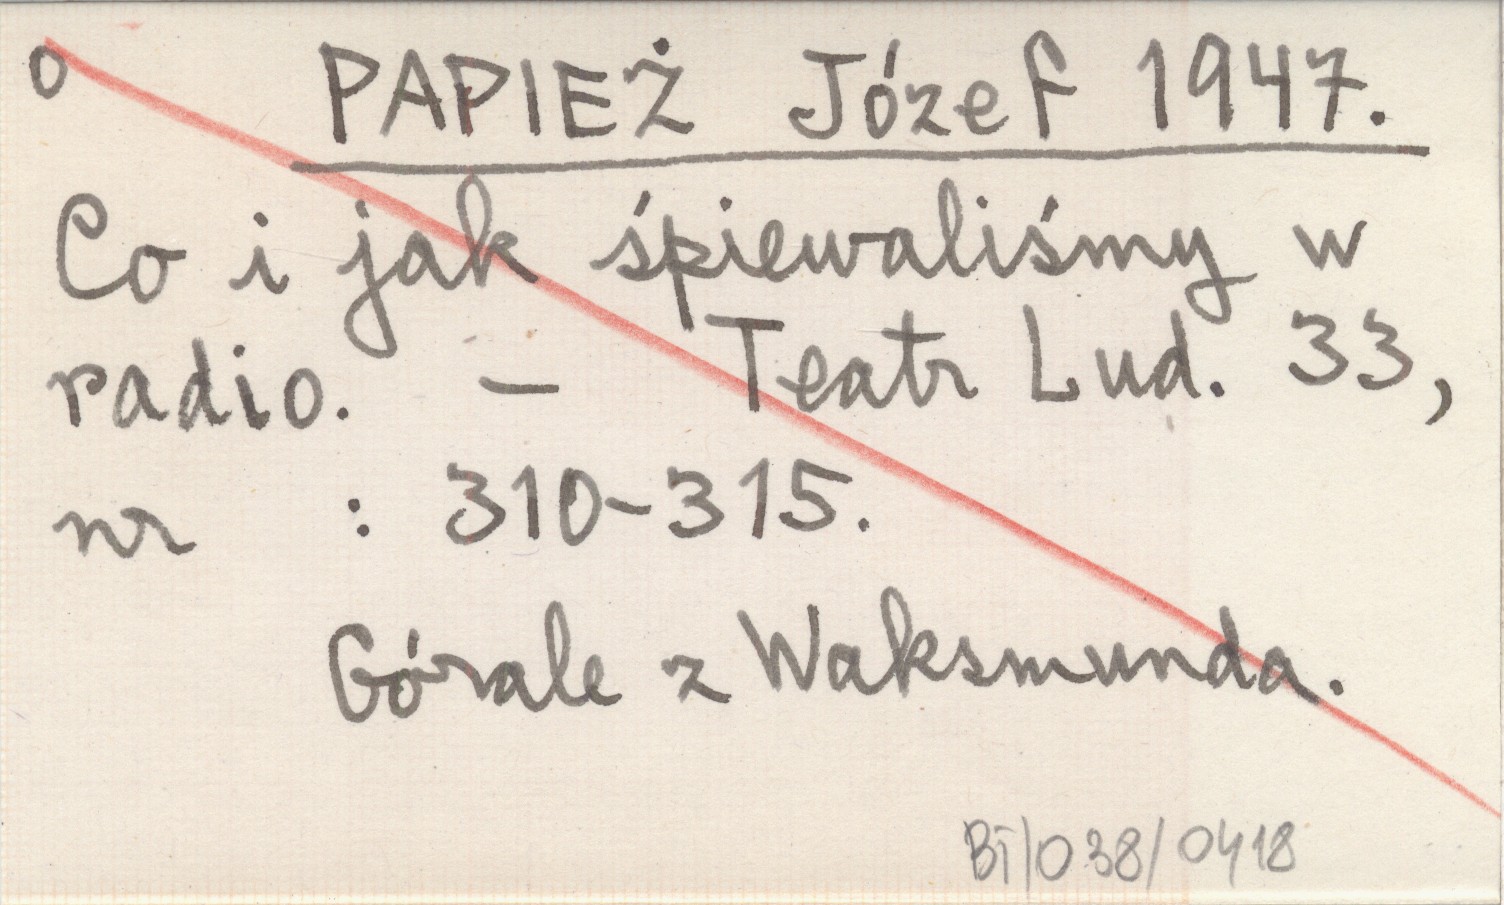 o PAPIEŻ Józef 1947.
Co i jak śpiewaliśmy w
radio. – Teatr Lud. 33,
nr : 310-315.
Górale z Waksmunda.
BI/038/0418